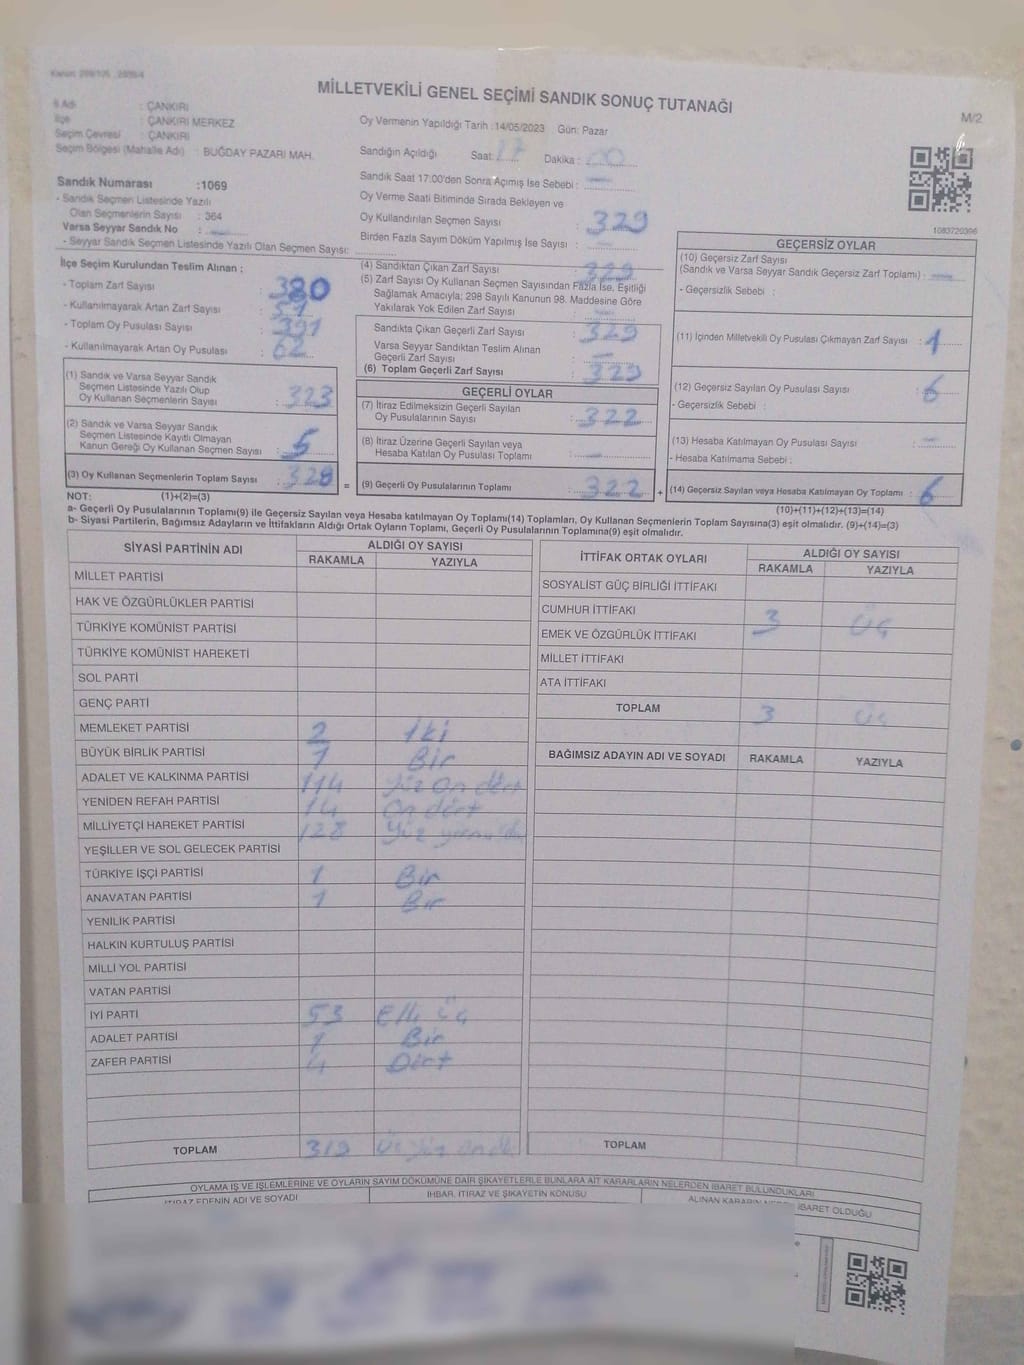 MİLLETVEKİLİ GENEL SEÇİMİ SANDIK SONUÇ TUTANAĞI
M/2
İl Adı : ÇANKIRI
İlçe : ÇANKIRI MERKEZ
Seçim Çevresi : ÇANKIRI
Seçim Bölgesi (Mahalle Adı) : BUĞDAY PAZARI MAH.
Sandık Numarası :1069
- Sandık Seçmen Listesinde Yazılı
Olan Seçmenlerin Sayısı : 364
Varsa Seyyar Sandık No :
- Seyyar Sandık Seçmen Listesinde Yazılı Olan Seçmen Sayısı:
Oy Vermenin Yapıldığı Tarih :14/05/2023 Gün: Pazar
Sandığın Açıldığı Saat: 17 Dakika : 00
Sandık Saat 17:00'den Sonra Açımış İse Sebebi :
Oy Verme Saati Bitiminde Sırada Bekleyen ve
Oy Kullandırılan Seçmen Sayısı : 329
Birden Fazla Sayım Döküm Yapılmış İse Sayısı :
1083720396
İlçe Seçim Kurulundan Teslim Alınan :
- Toplam Zarf Sayısı : 380
- Kullanılmayarak Artan Zarf Sayısı :
- Toplam Oy Pusulası Sayısı : 391
- Kullanılmayarak Artan Oy Pusulası : 62
(1) Sandık ve Varsa Seyyar Sandık
Seçmen Listesinde Yazılı Olup
Oy Kullanan Seçmenlerin Sayısı : 323
(2) Sandık ve Varsa Seyyar Sandık
Seçmen Listesinde Kayıtlı Olmayan
Kanun Gereği Oy Kullanan Seçmen Sayısı : 5
(3) Oy Kullanan Seçmenlerin Toplam Sayısı : 328
(4) Sandıktan Çıkan Zarf Sayısı : 329
(5) Zarf Sayısı Oy Kullanan Seçmen Sayısından Fazla İse, Eşitliği
Sağlamak Amacıyla; 298 Sayılı Kanunun 98. Maddesine Göre
Yakılarak Yok Edilen Zarf Sayısı :
Sandıkta Çıkan Geçerli Zarf Sayısı : 329
Varsa Seyyar Sandıktan Teslim Alınan
Geçerli Zarf Sayısı :
(6) Toplam Geçerli Zarf Sayısı : 329
GEÇERLİ OYLAR
(7) İtiraz Edilmeksizin Geçerli Sayılan
Oy Pusulalarının Sayısı : 322
(8) İtiraz Üzerine Geçerli Sayılan veya
Hesaba Katılan Oy Pusulası Toplamı :
= (9) Geçerli Oy Pusulalarının Toplamı : 322 +
GEÇERSİZ OYLAR
(10) Geçersiz Zarf Sayısı
(Sandık ve Varsa Seyyar Sandık Geçersiz Zarf Toplamı) :
- Geçersizlik Sebebi :
(11) İçinden Milletvekili Oy Pusulası Çıkmayan Zarf Sayısı : 1
(12) Geçersiz Sayılan Oy Pusulası Sayısı : 6
- Geçersizlik Sebebi :
(13) Hesaba Katılmayan Oy Pusulası Sayısı : -
- Hesaba Katılmama Sebebi :
(14) Geçersiz Sayılan veya Hesaba Katılmayan Oy Toplamı : 6
NOT: (1)+(2)=(3)
(10)+(11)+(12)+(13)=(14)
a- Geçerli Oy Pusulalarının Toplamı(9) ile Geçersiz Sayılan veya Hesaba Katılmayan Oy Toplamı(14) Toplamları, Oy Kullanan Seçmenlerin Toplam Sayısına(3) eşit olmalıdır. (9)+(14)=(3)
b- Siyasi Partilerin, Bağımsız Adayların ve İttifakların Aldığı Ortak Oyların Toplamı, Geçerli Oy Pusulalarının Toplamına(9) eşit olmalıdır.
SİYASİ PARTİNİN ADI ALDIĞI OY SAYISI
RAKAMLA YAZIYLA
MİLLET PARTİSİ
HAK VE ÖZGÜRLÜKLER PARTİSİ
TÜRKİYE KOMÜNİST PARTİSİ
TÜRKİYE KOMÜNİST HAREKETİ
SOL PARTİ
GENÇ PARTİ
MEMLEKET PARTİSİ 2 İki
BÜYÜK BİRLİK PARTİSİ 1 Bir
ADALET VE KALKINMA PARTİSİ 114 Yüz On dört
YENİDEN REFAH PARTİSİ 14 On dört
MİLLİYETÇİ HAREKET PARTİSİ 128 Yüz
YEŞİLLER VE SOL GELECEK PARTİSİ
TÜRKİYE İŞÇİ PARTİSİ 1 Bir
ANAVATAN PARTİSİ 1 Bir
YENİLİK PARTİSİ
HALKIN KURTULUŞ PARTİSİ
MİLLİ YOL PARTİSİ
VATAN PARTİSİ
İYİ PARTİ 53 Elli üç
ADALET PARTİSİ 1 Bir
ZAFER PARTİSİ 4 Dört
TOPLAM 319
İTTİFAK ORTAK OYLARI ALDIĞI OY SAYISI
RAKAMLA YAZIYLA
SOSYALİST GÜÇ BİRLİĞİ İTTİFAKI
CUMHUR İTTİFAKI 3 Üç
EMEK VE ÖZGÜRLÜK İTTİFAKI
MİLLET İTTİFAKI
ATA İTTİFAKI
TOPLAM 3 Üç
BAĞIMSIZ ADAYIN ADI VE SOYADI RAKAMLA YAZIYLA
TOPLAM
OYLAMA İŞ VE İŞLEMLERİNE VE OYLARIN SAYIM DÖKÜMÜNE DAİR ŞİKAYETLERLE BUNLARA AİT KARARLARIN NELERDEN İBARET BULUNDUKLARI
İTİRAZ EDENİN ADI VE SOYADI
İHBAR, İTİRAZ VE ŞİKAYETİN KONUSU
ALINAN KARARIN İBARET OLDUĞU